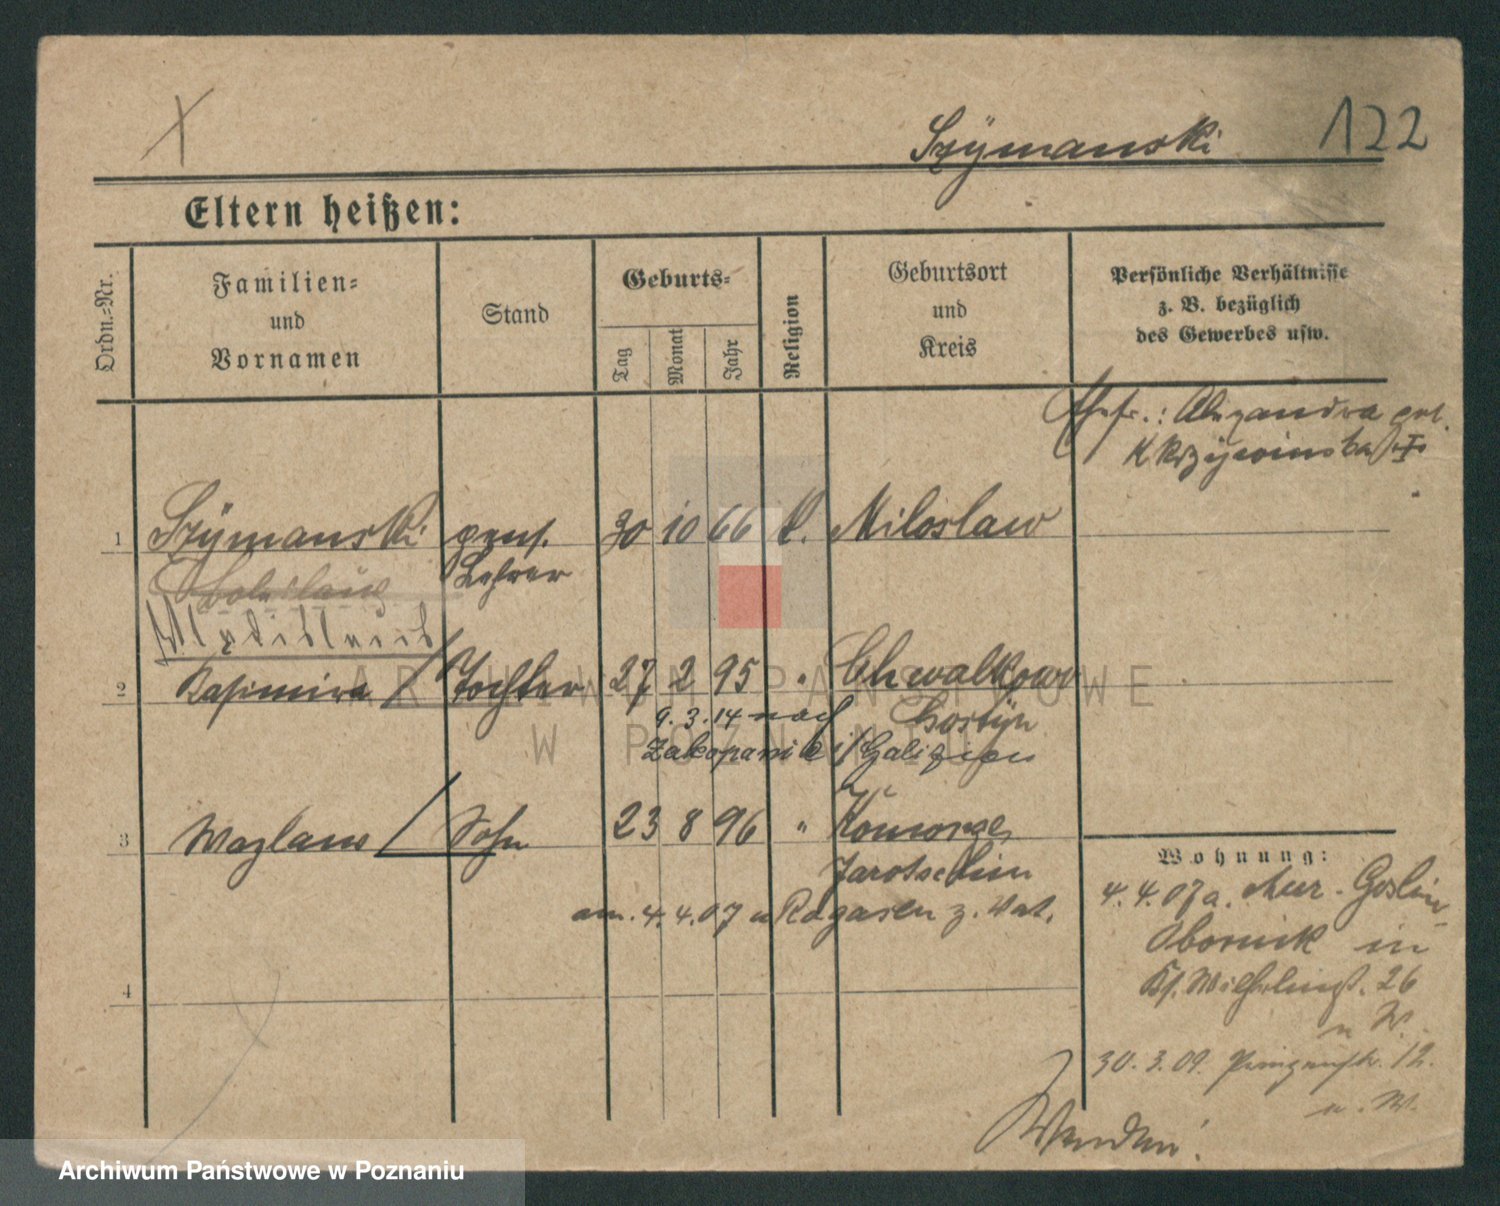 Szÿmanski 122
Eltern heißen:
Ordn.=Nr.
Familien=
und
Vornamen
Stand
Geburts=
Tag
Monat
Jahr
Religion
Geburtsort
und
Kreis
Persönliche Verhältnisse
z. B. bezüglich
des Gewerbes usw.
Ehefr.: Alexandra geb.
1 Szÿmanski pens. 30 10 66 k. Miloslaw
Boleslaus Lehrer
Wladislaus
2 Kasimira Tochter 27 2 95 " Chwalkowo
9.3.14 nach Gostÿn
Zakopane i/Galizien
3 Wazlaw Sohn 23 8 96 " Komorze,
Jarotschin
am. 4.4.07 n Rogasen z. Vat.
4
Wohnung:
4.4.07 a. Mur.-Goslin
Obornik in
Kl. Wilhelmst. 26
n. W.
30.3.09. 12.
n. W.
Wenden!
ARCHIWUM PAŃSTWOWE
W POZNANIU
Archiwum Państwowe w Poznaniu